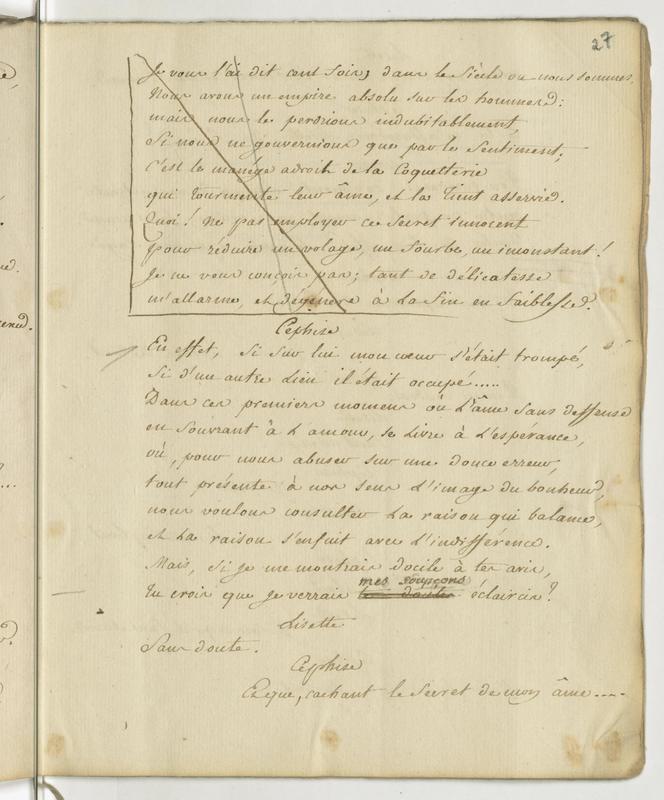 27
Je vous l'ai dit cent fois, dans le siècle où nous sommes,
Nous avons un empire absolu sur les hommes:
mais nous le perdrions indubitablement,
Si nous ne gouvernions que par le Sentiment;
C'est le manége adroit de la Coquetterie
qui tourmente leur âme, et la tient asservie.
Quoi! Ne pas employer ce Secret innocent
pour réduire un volage, un fourbe, un inconstant!
Je ne vous conçois pas; tant de délicatesse
m'allarme, et dégénere à la fin en faiblesse.
Cephise
En effet, Si sur lui mon cœur s'était trompé,
Si d'un autre lien il était occupé.....
Dans ces premiers momens où L'âme sans deffense
en s'ouvrant à L'amour, se livre à L'espérance,
où, pour nous abuser sur une douce erreur,
tout présente à nos sens L'image du bonheur,
nous voulons consulter La raison qui balance,
et La raison s'enfuit avec L'indifférence.
Mais, si je me montrais docile à tes avis,
mes soupçons
Tu crois que je verrais doutes éclaircis?
Lisette
Sans doute.
Cephise
Et que, cachant le Secret de mon âme.....